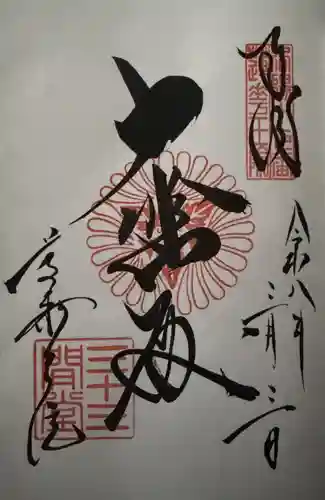 奉拝
令和八年
三月三日
大悲殿
蓮華王院
三十三
間堂